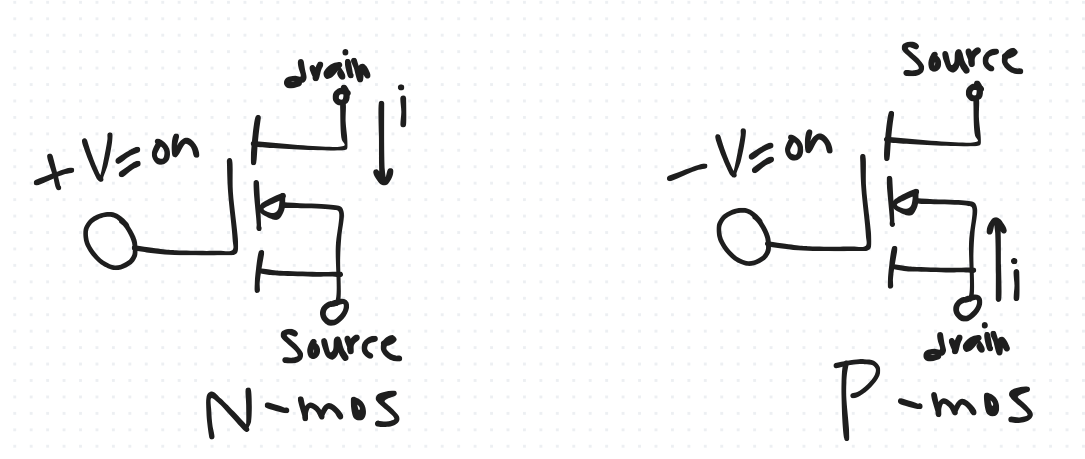 drain
i
+ V = on
Source
N - mos
Source
- V = on
i
drain
P - mos